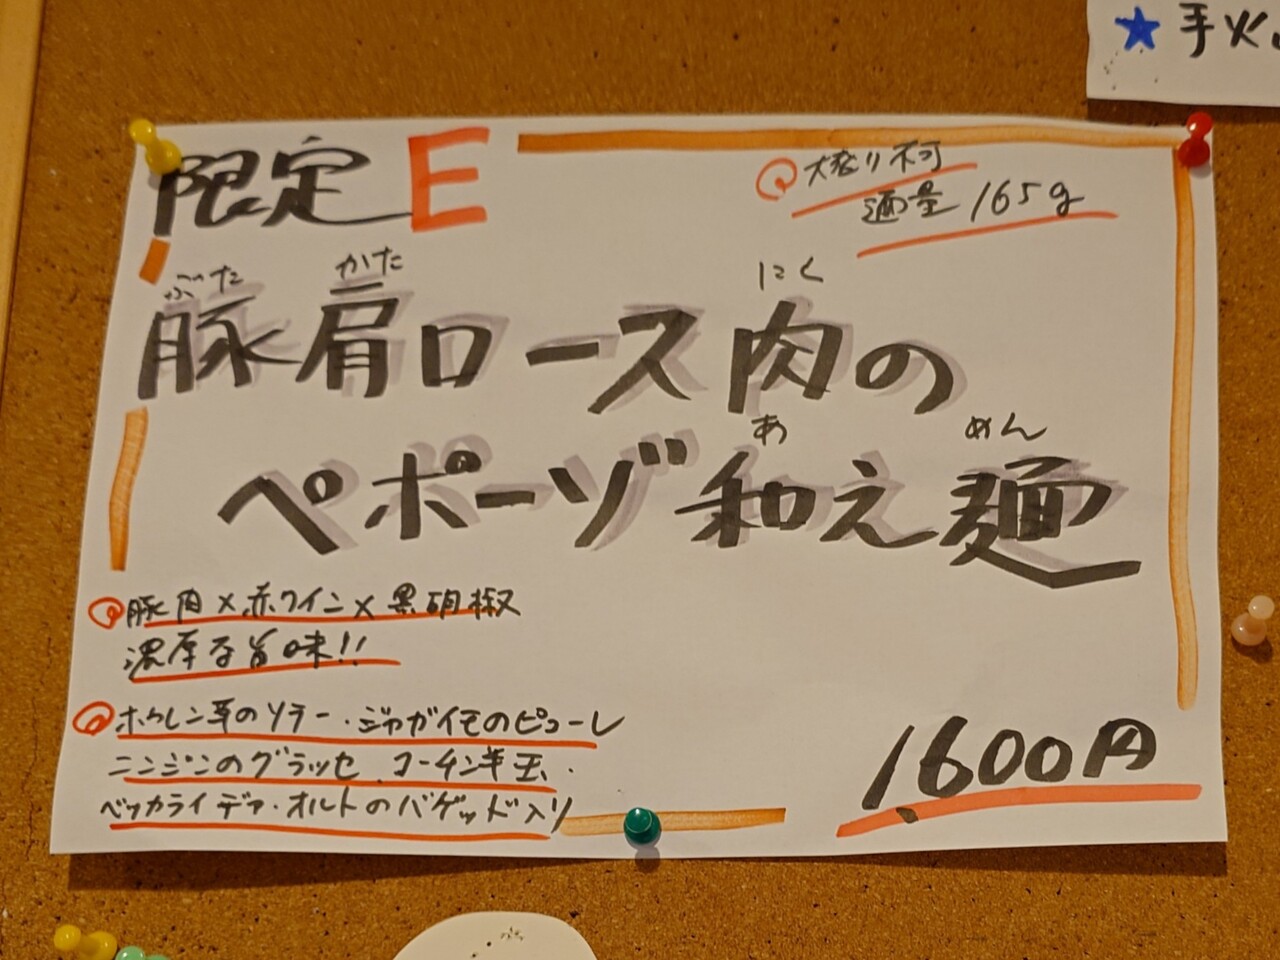 ★手火
限定E
大盛り不可
麺量165g
ぶた かた にく
豚肩ロース肉の
あ めん
ペポーゾ和え麺
豚肉×赤ワイン×黒胡椒
濃厚な旨味!!
ホウレン草のソテー・ジャガイモのピューレ
ニンジンのグラッセ、コーチン半玉、
ベッカライ デァ・オルトのバゲッド入り
1600円